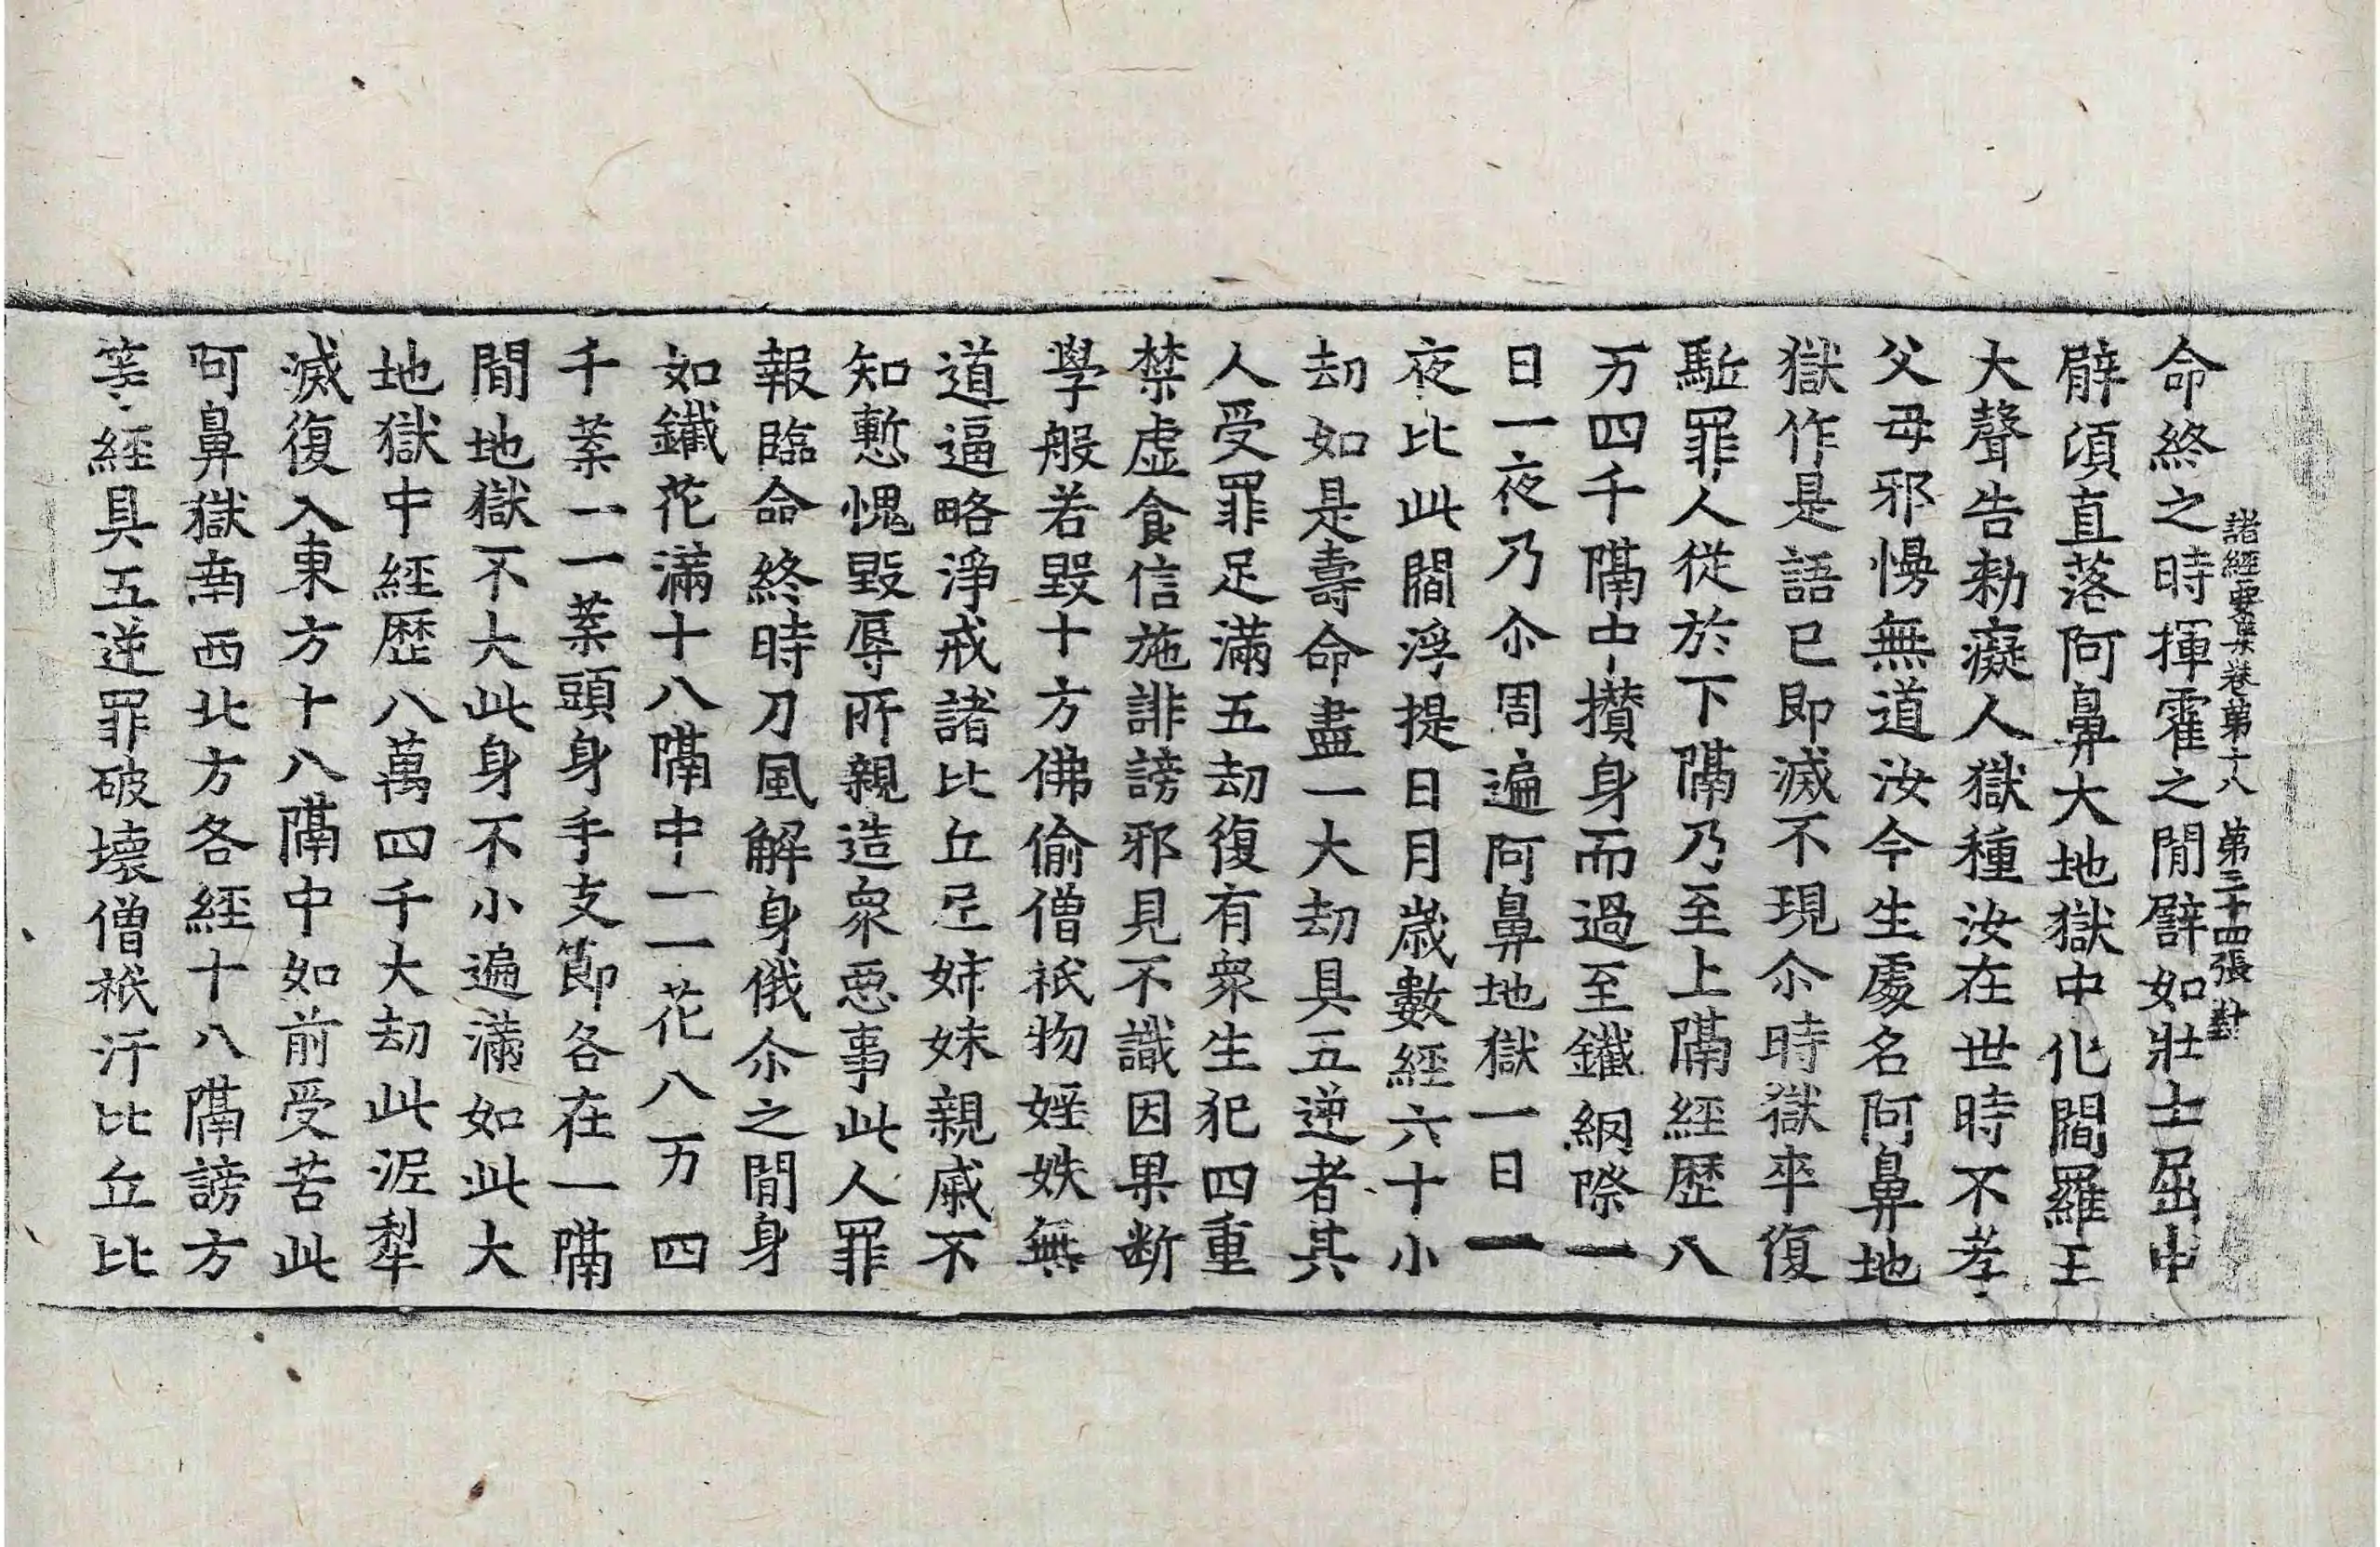 命終之時揮霍之閒譬如壯士屈申
諸經要集卷第十八 第三十四張 對
臂須直落阿鼻大地獄中化閻羅王
大聲告勑癡人獄種汝在世時不孝
父母邪慢無道汝今生處名阿鼻地
獄作是語已即滅不現尒時獄卒復
駈罪人從於下隔乃至上隔經歷八
万四千隔中攢身而過至鐵網際一
日一夜乃尒周遍阿鼻地獄一日一
夜比此閻浮提日月歲數經六十小
劫如是壽命盡一大劫具五逆者其
人受罪足滿五劫復有衆生犯四重
禁虛食信施誹謗邪見不識因果断
學般若毀十方佛偷僧祇物婬妷無
道逼略淨戒諸比丘尼姉妹親戚不
知慙愧毀辱所親造衆惡事此人罪
報臨命終時刀風解身俄尒之閒身
如鐵花滿十八隔中一一花八万四
千葉一一葉頭身手支節各在一隔
閒地獄不大此身不小遍滿如此大
地獄中經歷八萬四千大劫此泥犁
滅復入東方十八隔中如前受苦此
阿鼻獄南西北方各經十八隔謗方
等經具五逆罪破壞僧祇汙比丘比